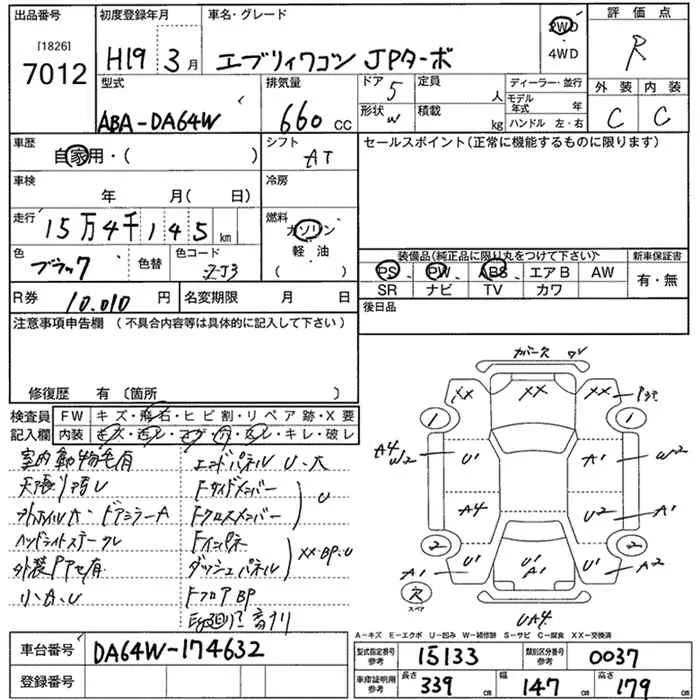 出品番号
[1826]
7012
初度登録年月
H19 3月
車名・グレード
エブリィワゴン JPターボ
2WD
4WD
評価点
R
型式
ABA-DA64W
排気量
660 CC
ドア 5
定員 人
形状 W
積載 kg
ディーラー・並行
モデル年式 年
ハンドル 左・右
外装 内装
C C
車歴
自家用・( )
シフト
AT
セールスポイント(正常に機能するものに限ります)
車検
年 月( 日)
冷房
走行
15万4千145 km
燃料
ガソリン
軽油
( )
色
ブラック
色替
色コード
ZJ3
装備品(純正品に限り丸をつけて下さい)
新車保証書
PS PW ABS エアB AW
SR ナビ TV カワ
有・無
R券 10.010 円
名変期限 月 日
後日品
注意事項申告欄(不具合内容等は具体的に記入して下さい)
修復歴 有〔箇所 〕
検査員記入欄
FW キズ・飛石・ヒビ割・リペア跡・X要
内装 キズ・汚レ・コゲ・穴・スレ・キレ・破レ
室内動物毛有
天張り汚U
ドアミラーA
小A.U
エンドパネル U・大
Fサイドメンバー
Fクロスメンバー
U
Fインパネ
ダッシュパネル
XX・BP.U
Fフロア BP
XX XX XX
1 1
A4
W2
U1 A1 W2
A4 U2 A1
2 2
A1 U1 U1 A1 U1 A2
欠
スペア
UA4
A-キズ E-エクボ U-凹み W-補修跡 S-サビ C-腐食 XX-交換済
車台番号
DA64W-174632
登録番号
型式指定番号
参考
15133
類別区分番号
参考
0037
車庫証明用
参考
長さ 339 cm
幅 147 cm
高さ 179 cm